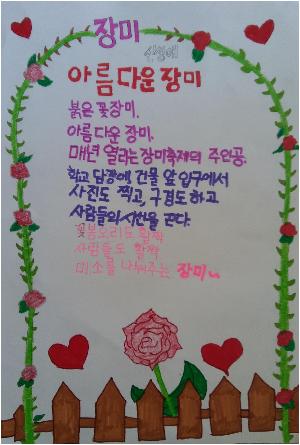 장미
신영애
아름다운 장미
붉은 꽃 장미.
아름다운 장미.
매년 열리는 장미축제의 주인공.
학교 담장에, 건물 앞 입구에서
사진도 찍고, 구경도 하고
사람들의 시선을 끈다.
꽃봉오리도 활짝
사람들도 활짝
미소를 나눠주는 장미~